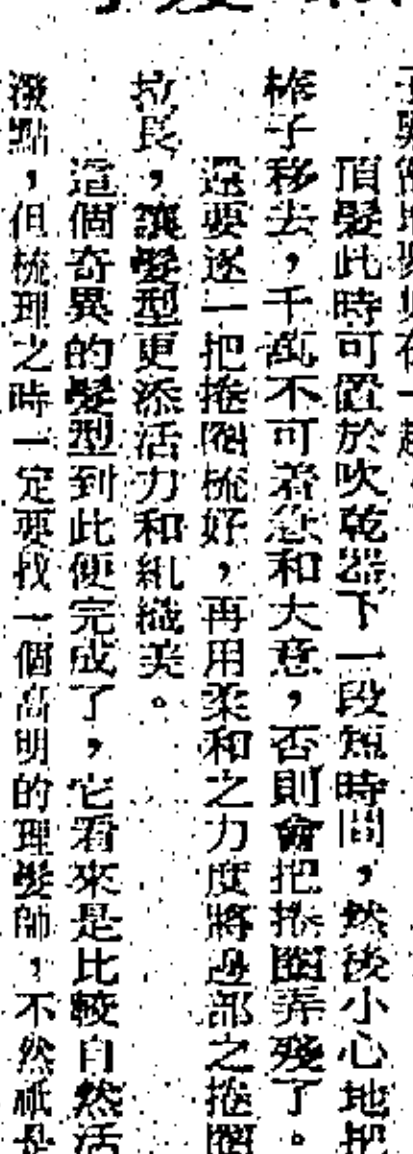 頂髮此時可置於吹乾器下一段短時間，然後小心地把
棒子移去，千萬不可着急和大意，否則會把捲圈弄殘了。
還要逐一把捲圈梳好，再用柔和之力度將邊部之捲圈
拉長，讓髮型更添活力和組織美。
這個奇異的髮型到此便完成了，它看來是比較自然活
潑點，但梳理之時一定要找一個高明的理髮師，不然祇是